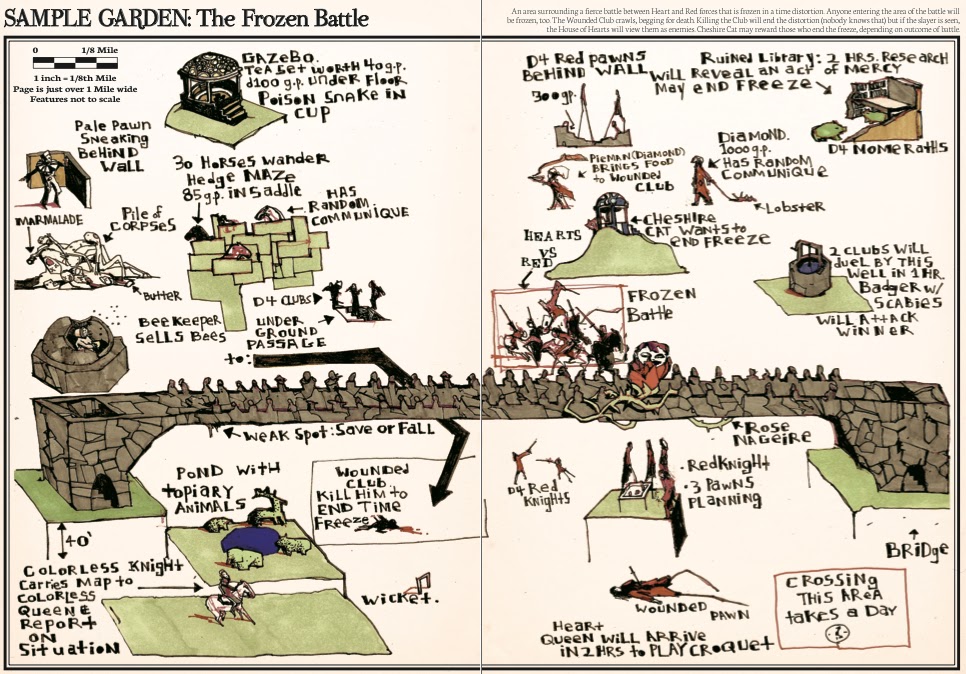 SAMPLE GARDEN: The Frozen Battle
An area surrounding a fierce battle between Heart and Red forces that is frozen in a time distortion. Anyone entering the area of the battle will
be frozen, too. The Wounded Club crawls, begging for death. Killing the Club will end the distortion (nobody knows that) but if the slayer is seen,
the House of Hearts will view them as enemies. Cheshire Cat may reward those who end the freeze, depending on outcome of battle.
0 1/8 Mile
1 inch = 1/8th Mile
Page is just over 1 Mile wide
Features not to scale
GAZEBO.
TEA SET WORTH 40 g.p.
d100 g.p. UNDER FLOOR
POISON SNAKE IN
CUP
PALE PAWN
SNEAKING
BEHIND
WALL
30 HORSES WANDER
HEDGE MAZE
85 g.p. IN SADDLE
HAS
RANDOM
COMMUNIQUE
MARMALADE
PILE OF
CORPSES
BUTTER
BEEKEEPER
SELLS BEES
D4 CLUBS
UNDER
GROUND
PASSAGE
to:
D4 RED PAWNS
BEHIND WALL
300 gp.
RUINED LIBRARY: 2 HRS. RESEARCH
WILL REVEAL AN ACT OF MERCY
MAY END FREEZE
D4 MOME RATHS
PIEMAN (DIAMOND)
BRINGS FOOD
to WOUNDED
CLUB
DIAMOND.
1000 g.p.
HAS RANDOM
COMMUNIQUE
LOBSTER
CHESHIRE
CAT WANTS to
END FREEZE
HEARTS
VS
RED
FROZEN
BATTLE
2 CLUBS WILL
DUEL BY THIS
WELL IN 1 HR.
BADGER W/
SCABIES
WILL ATTACK
WINNER
WEAK SPOT: SAVE OR FALL
ROSE
NAGEIRE
POND WITH
TOPIARY
ANIMALS
WOUNDED
CLUB
KILL HIM to
END TIME
FREEZE
D4 RED
KNIGHTS
• RED KNIGHT
• 3 PAWNS
PLANNING
40'
BRIDGE
COLORLESS KNIGHT
CARRIES MAP to
COLORLESS
QUEEN &
REPORT
ON
SITUATION
WICKET.
WOUNDED PAWN
CROSSING
THIS AREA
TAKES A DAY
?
HEART
QUEEN WILL ARRIVE
IN 2 HRS to PLAY CROQUET